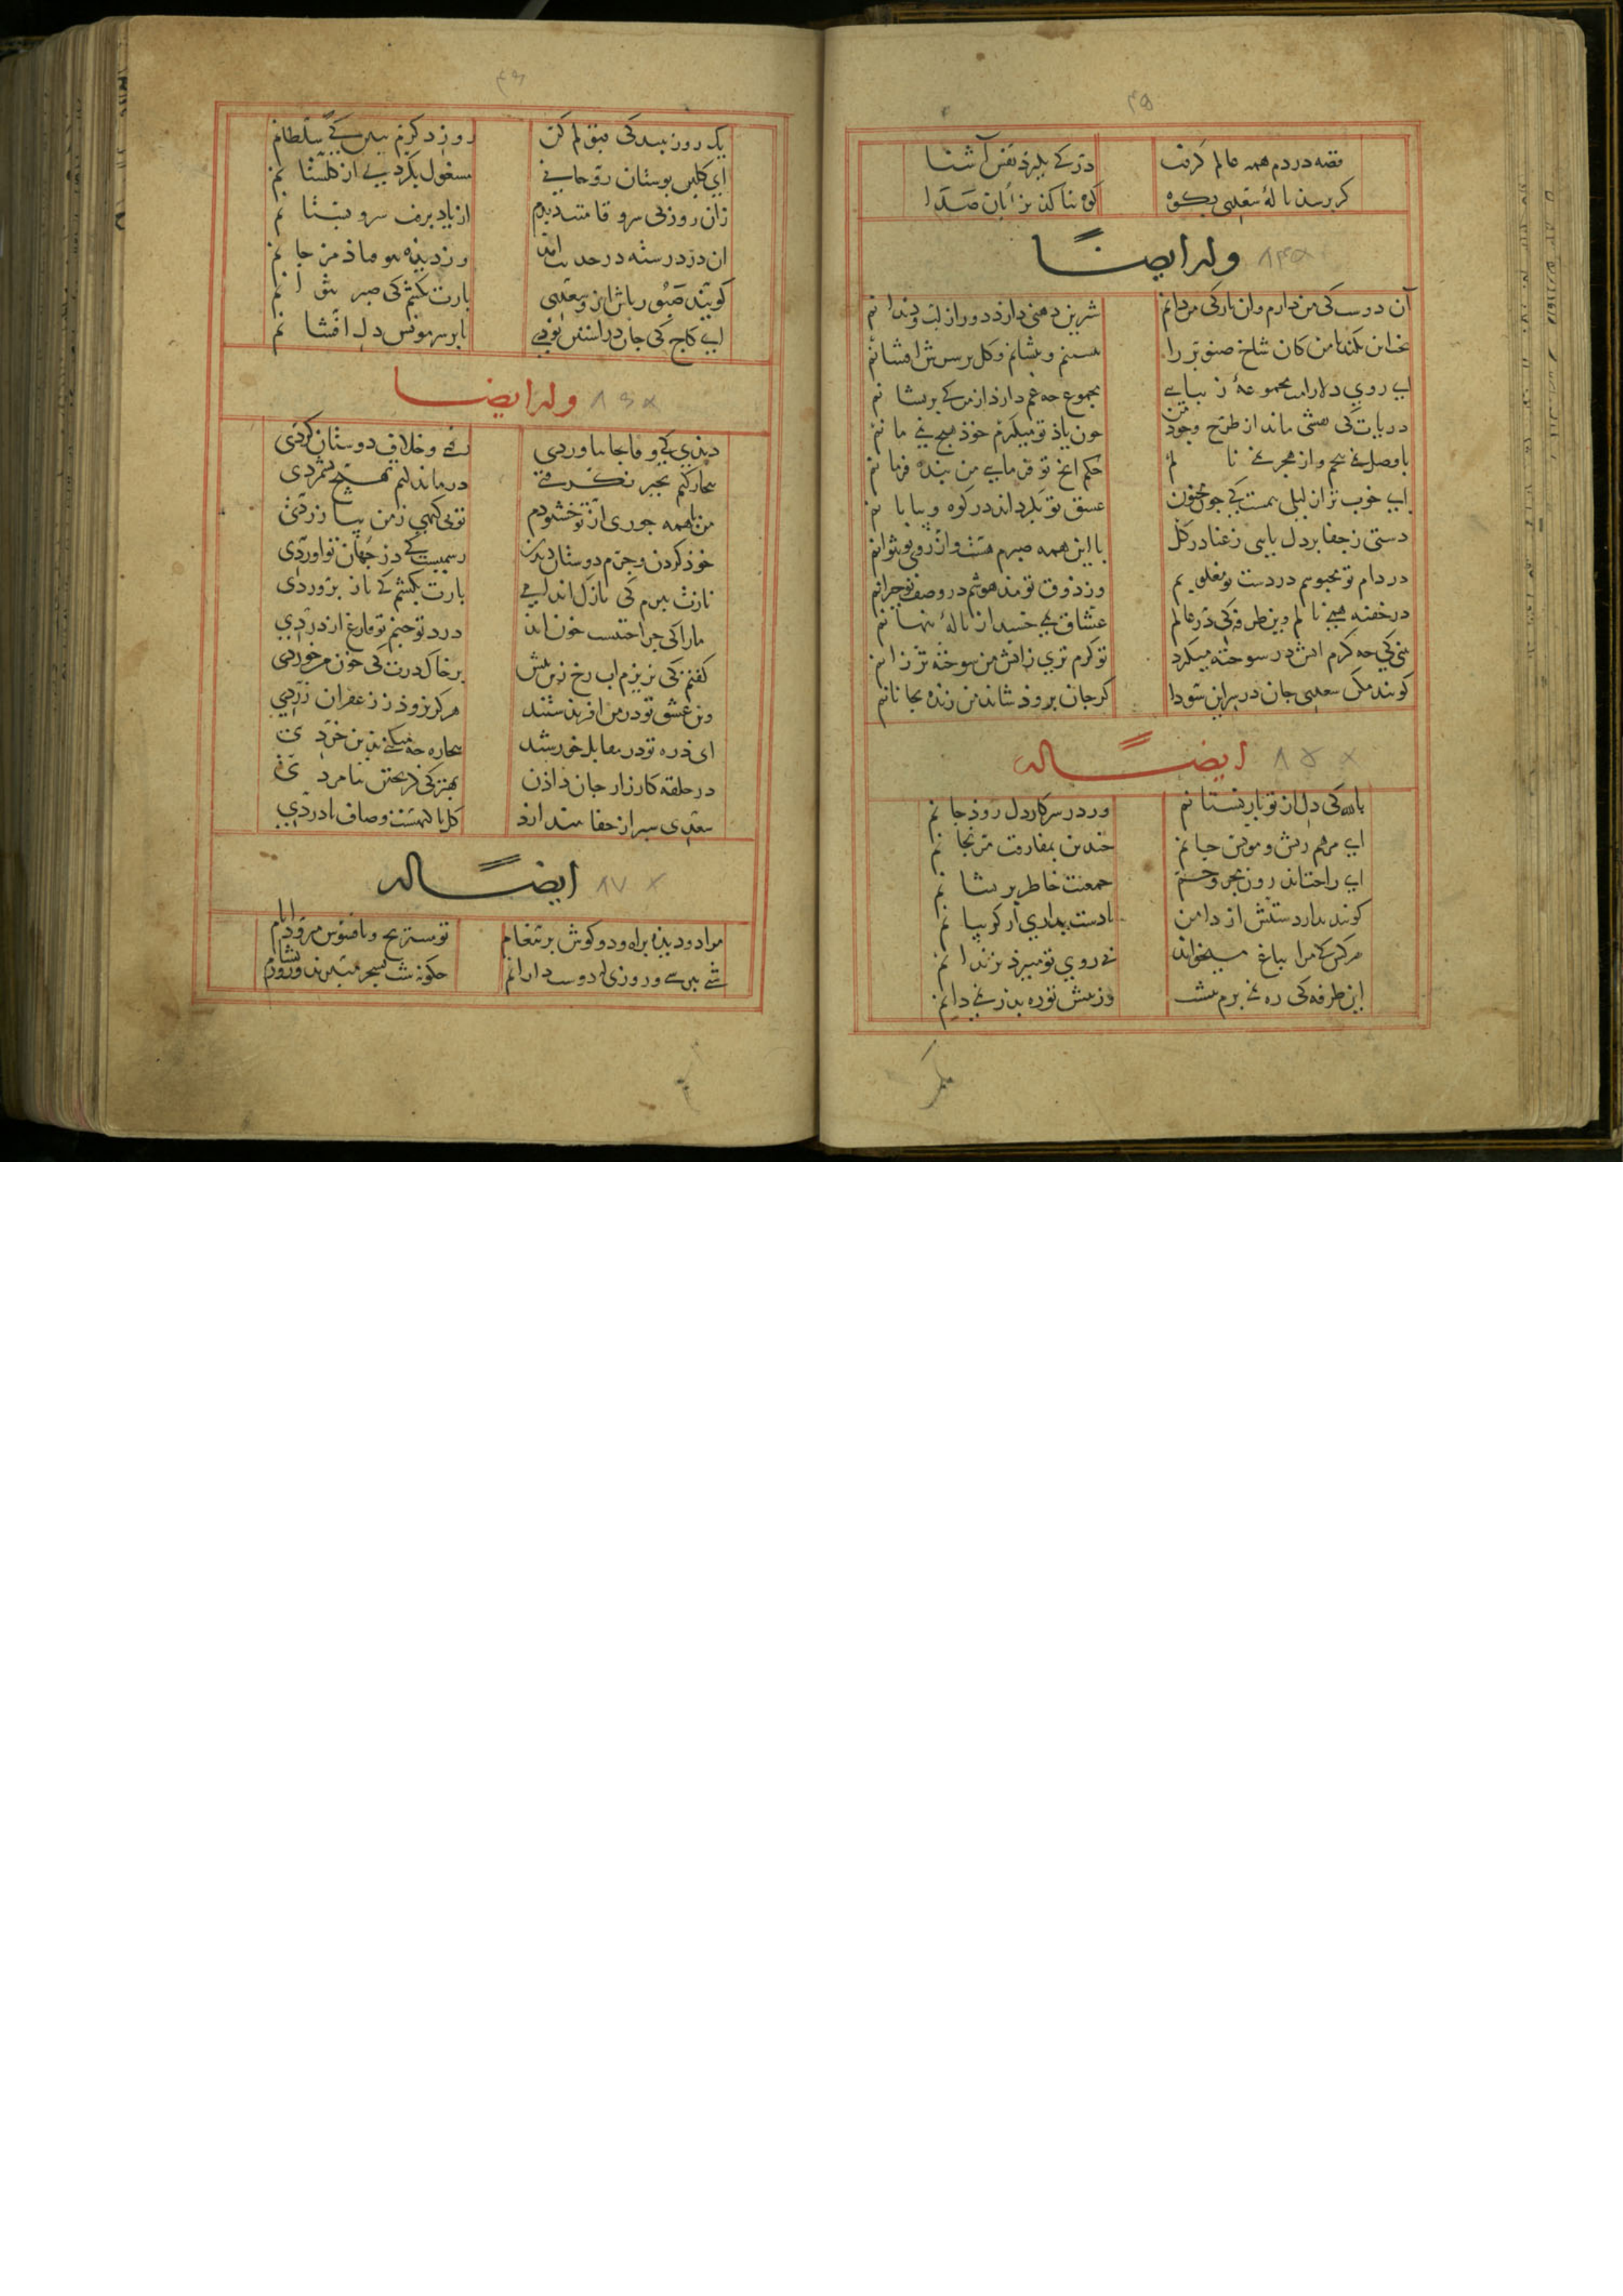 ۴۵
قصه دردم همه عالم گرفت درکی بگیرد نفس آشنا
گر برسد نالهٔ سعدی بکوه کوه بنالد بزبان صدا
وله ایضاً ۸۴
آن دوست کی من دارم وان یار کی من دانم شیرین دهنی دارد دور از لب و دندانم
بخت این نکند با من کان شاخ صنوبر را بنشینم و بنشانم و گل بر سرش افشانم
ای روی دلارامت مجموعهٔ زیبایی مجموع چه غم دارد از من کی پریشانم
دریاب کی نقشی ماند از طرح وجود من چون یاد تو میکنم خود هیچ نمی مانم
با وصل نمی پیچم وز هجر نمی نالم حکم آنچ تو فرمایی من بنده فرمانم
ای خوب تر از لیلی بیمست کی چون مجنون عشق تو بگرداند در کوه و بیابانم
دستی ز جفا بر دل پایی ز عنا در گل با این همه صبرم هست و از روی تو نتوانم
در دام تو محبوسم در دست تو مغلوبم وز ذوق تو مدهوشم در وصف تو حیرانم
در خفیه همی نالم وین طرفه کی در عالم عشاق نمی خسبند از نالهٔ پنهانم
بینی کی چه گرم آتش در سوخته میگیرد تو گرم تری ز آتش من سوخته تر ز آنم
گویند مکن سعدی جان در سر این سودا گر جان برود شاید من زنده بجانانم
ایضاً له ۸۵
بالله کی دل از تو باز نستانم ور در سر کار دل رود جانم
ای مرهم ریش و مونس جانم چندین بمفارقت مرنجانم
ای راحت اندرون مجروحم جمعیت خاطر پریشانم
گویند بدار دستش از دامن تا دست بداری از گریبانم
هر کس کی مرا بباغ میخواند بی روی تو میبرد بزندانم
این طرفه کی ره نمی برم پیشت وز پیش تو ره بدر نمی دانم
۴۶
یک روز ببندگی قبولم کن روز دگرم ببین کی سلطانم
ای گلبن بوستان روحانی مشغول بکردیی از گلستانم
زان روز کی سرو قامتت دیدم از یاد برفت سرو بستانم
آن در دو رسته در حدیث آمد وز دیده بیوفتاد مرجانم
گویند صبور باش از و سعدی بارت بکشم کی صبر نتوانم
ای کاج کی جان در آستین بودی تا بر سر مونس دل افشانم
وله ایضا ۸۶
دیدی کی وفا بجا نیاوردی رفتی و خلاف دوستان کردی
بیچارگیم بچیز نگرفتی درماندگیم بهیچ نشمردی
من با همه جوری از تو خشنودم تو بی گنهی ز من بیازردی
خود کردن و جرم دوستان دیدن رسمیست کی در جهان تو آوردی
نازت ببرم کی نازک اندامی بارت بکشم کی ناز پروردی
ما را کی جراحتست خون آید درد تو چنم تو فارغ از دردی
گفتم کی نریزم آب رخ زین بیش بر خاک درت کی خون من خوردی
وین عشق تو در من آفریدستند هرگز نرود ز زعفران زردی
ای ذره تو در مقابل خورشید بیچاره چه میکنی بدین خردی
در حلقه کارزار جان دادن بهتر کی گریختن بنامردی
سعدی سپر از جفا نیندازد گل با گیهست و صاف با دردی
ایضاً له ۸۷
مرا دو دیده براه و دو گوش بر پیغام تو مستریح و بافسوس میرود ایام
شبی نپرسی و روزی کی دوست دارانم چگونه شب بسحر میبرند و روز بشام